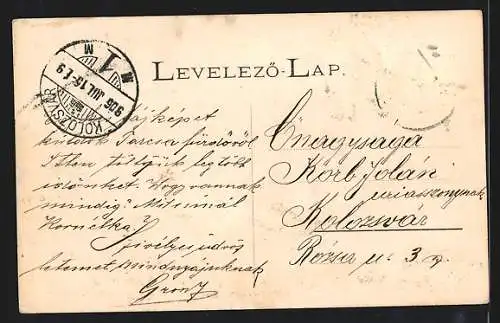 LEVELEZŐ-LAP.
KOLOZSVÁR
906 JUL 15
M
Tájképet
küldök Tarcsa fürdőről
Itten töltjük legtöbb
időnket. Hogy vannak
mindig?
Kornélka?
Szívélyes üdvöz
letemet mindnyájuknak
Őnagysága
Korb Jolán
uriasszonynak
Kolozsvár
Rózsa u. 3